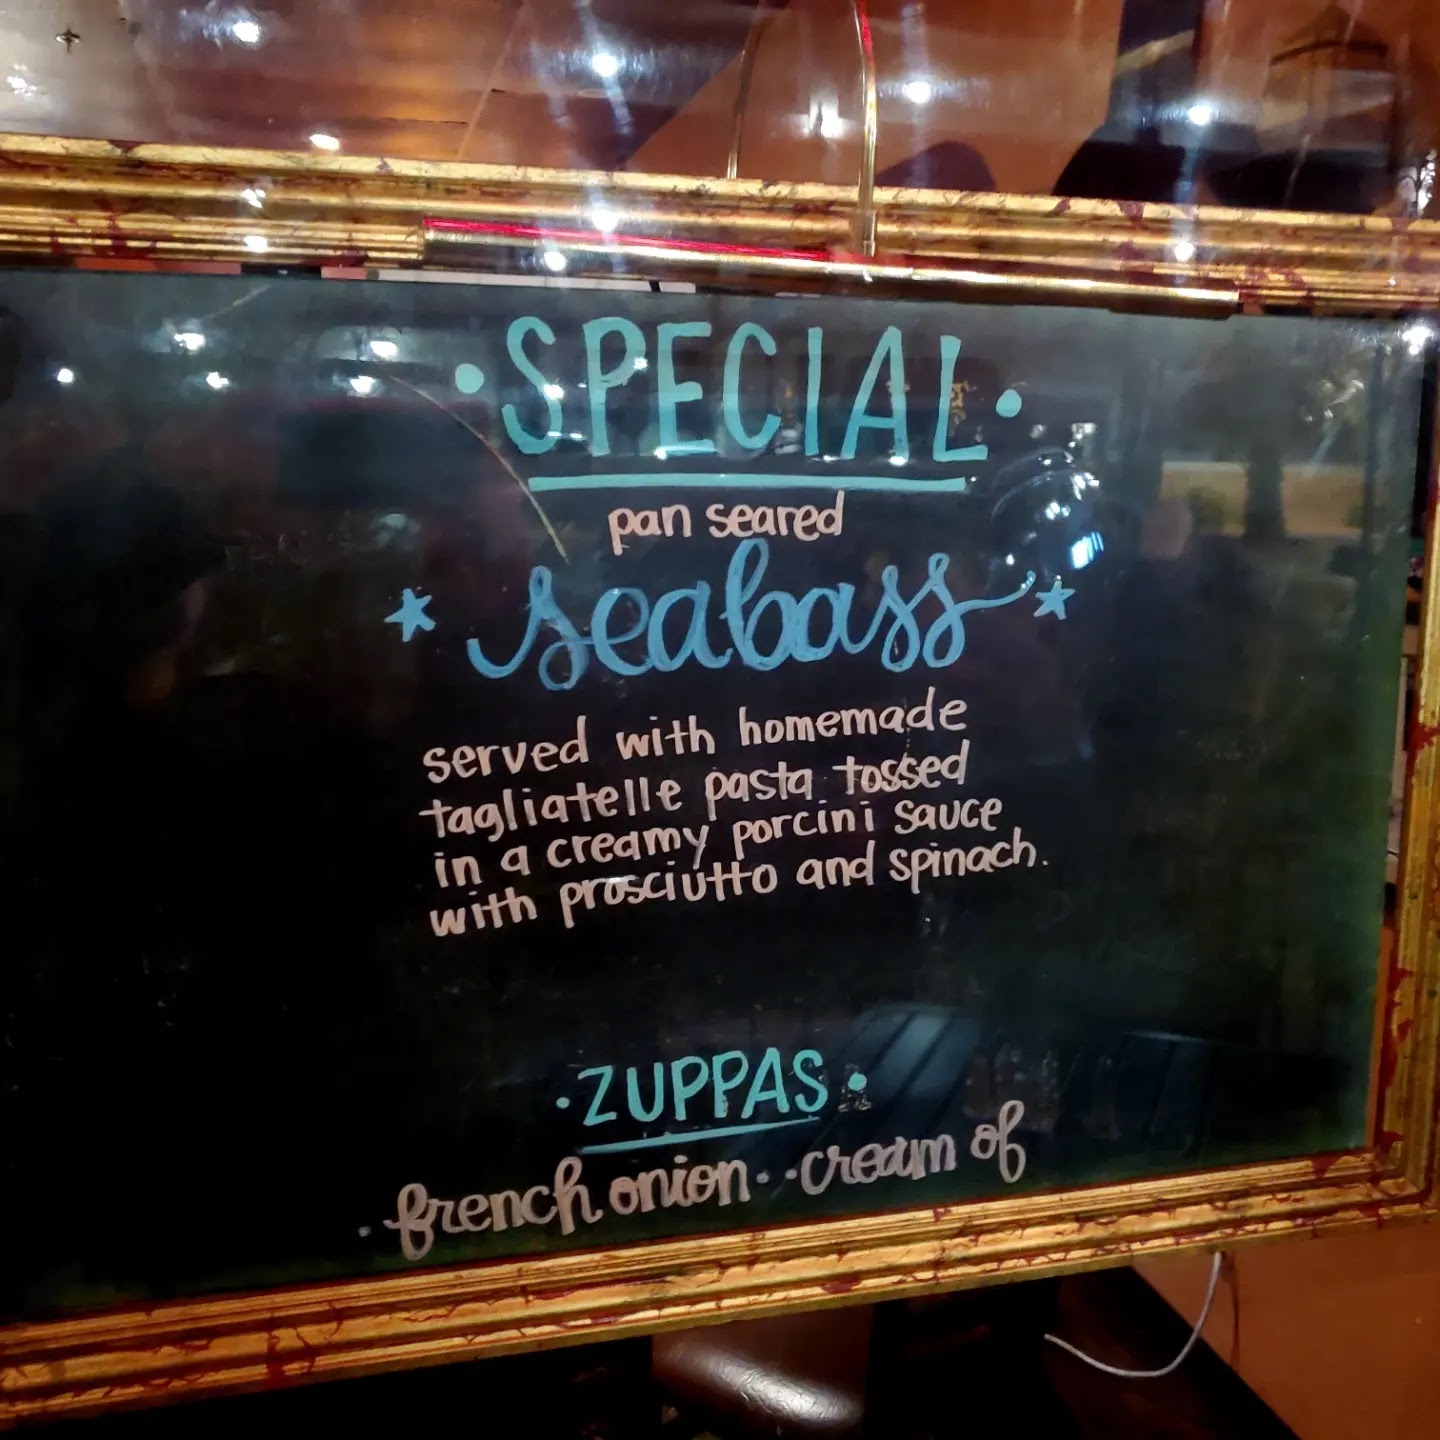 • SPECIAL •
pan seared
★ seabass ★
served with homemade
tagliatelle pasta tossed
in a creamy porcini sauce
with prosciutto and spinach.
• ZUPPAS •
• french onion • • cream of